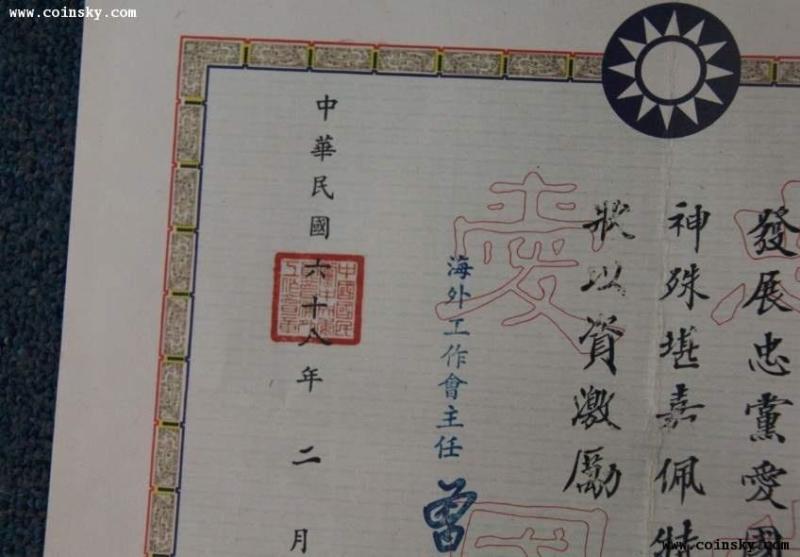 www.coinsky.com
發展忠黨愛
神殊堪嘉佩特
狀以資激勵
海外工作會主任
曾
中華民國六十八年二月
愛
www.coinsky.com